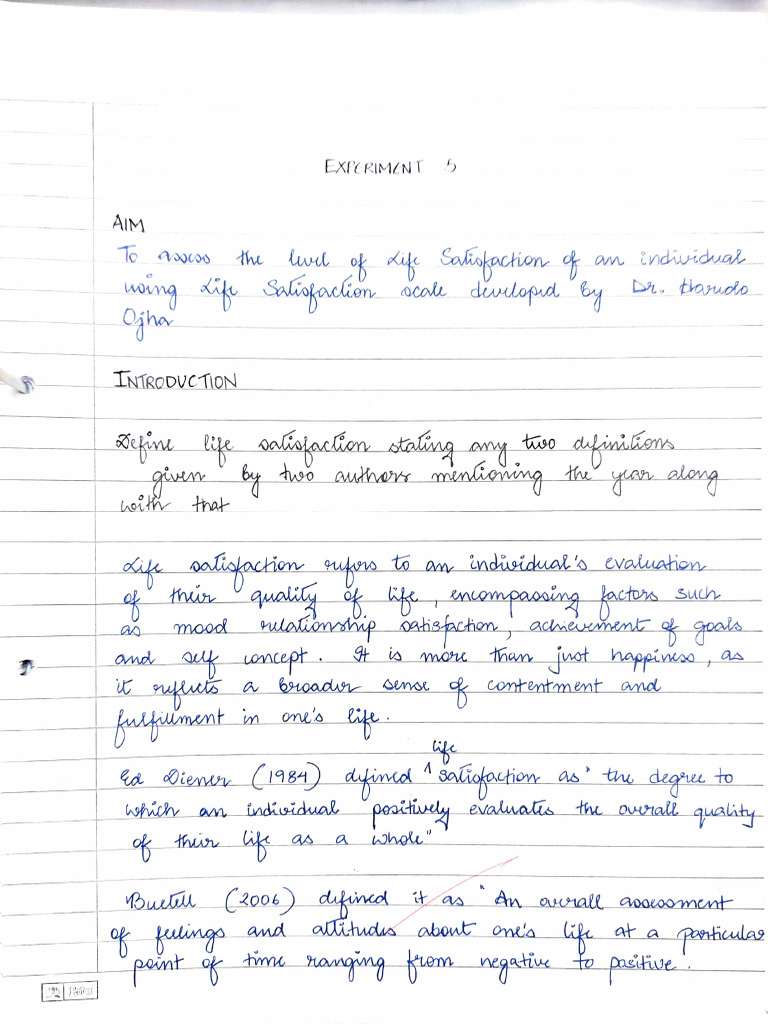 EXPERIMENT 5
AIM
To assess the level of Life Satisfaction of an individual
using Life Satisfaction scale developed by Dr. Hardo
Ojha
INTRODUCTION
Define life satisfaction stating any two definitions
given by two authors mentioning the year along
with that
Life satisfaction refers to an individual's evaluation
of their quality of life, encompassing factors such
as mood relationship satisfaction, achievement of goals
and self concept. It is more than just happiness, as
it reflects a broader sense of contentment and
fulfillment in one's life.
Ed Diener (1984) defined life satisfaction as "the degree to
which an individual positively evaluates the overall quality
of their life as a whole"
Buetell (2006) defined it as "An overall assessment
of feelings and attitudes about one's life at a particular
point of time ranging from negative to positive.